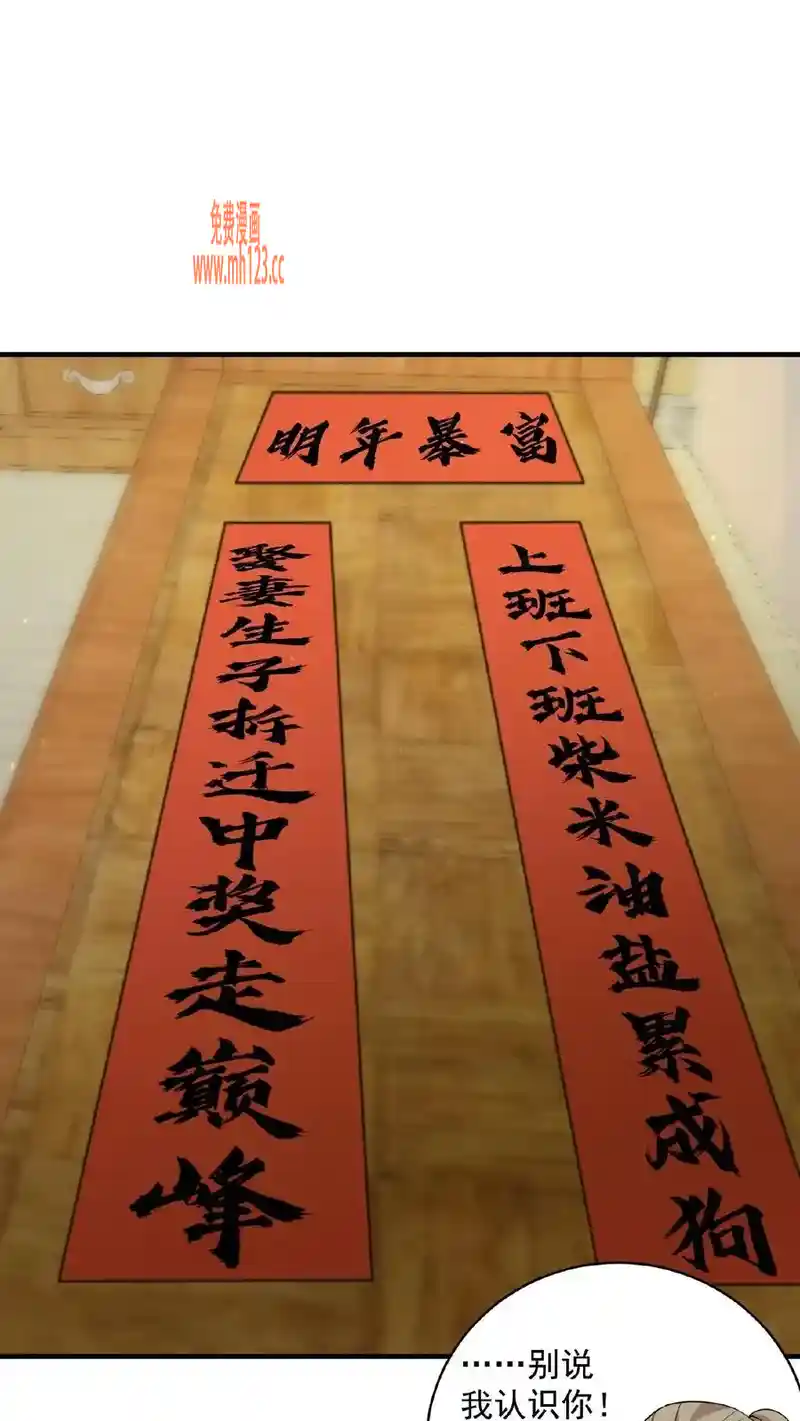 免费漫画
www.mh123.cc
明年暴富
上班下班柴米油盐累成狗
娶妻生子拆迁中奖走巅峰
……别说
我认识你！